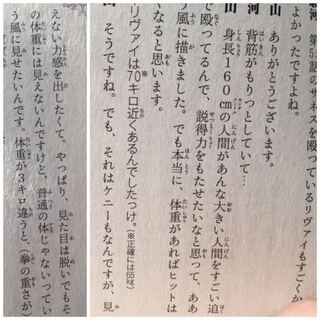 河 第55話のサネスを殴っているリヴァイもすごくか
よかったですよね。
山 ありがとうございます。
河 背筋がもりっとしていて…
山 身長160cmの人間があんな大きい人間をすごい迫
で殴ってるんで、説得力をもたせたいなと思って、ああ
風に描きました。でも本当に、体重があればヒットは
なると思います。
リヴァイは70キロ※近くあるんでしたっけ。(※正確には65kg)
そうですね。でも、それはケニーもなんですが、見
えない力感を出したくて。やっぱり、見た目は脱いでもそ
の体重には見えないんですけど、普通の体じゃないってい
う風に見せたいんです。体重が3キロ違うと、(拳の重さが